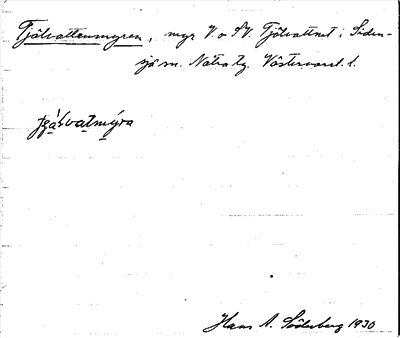 Tjälvattenmyren, myr V. o SV. Tjälvattnet i Siden-
sjö sn. Nätra tg. Västernorrl. l.
Hans A. Söderberg 1930